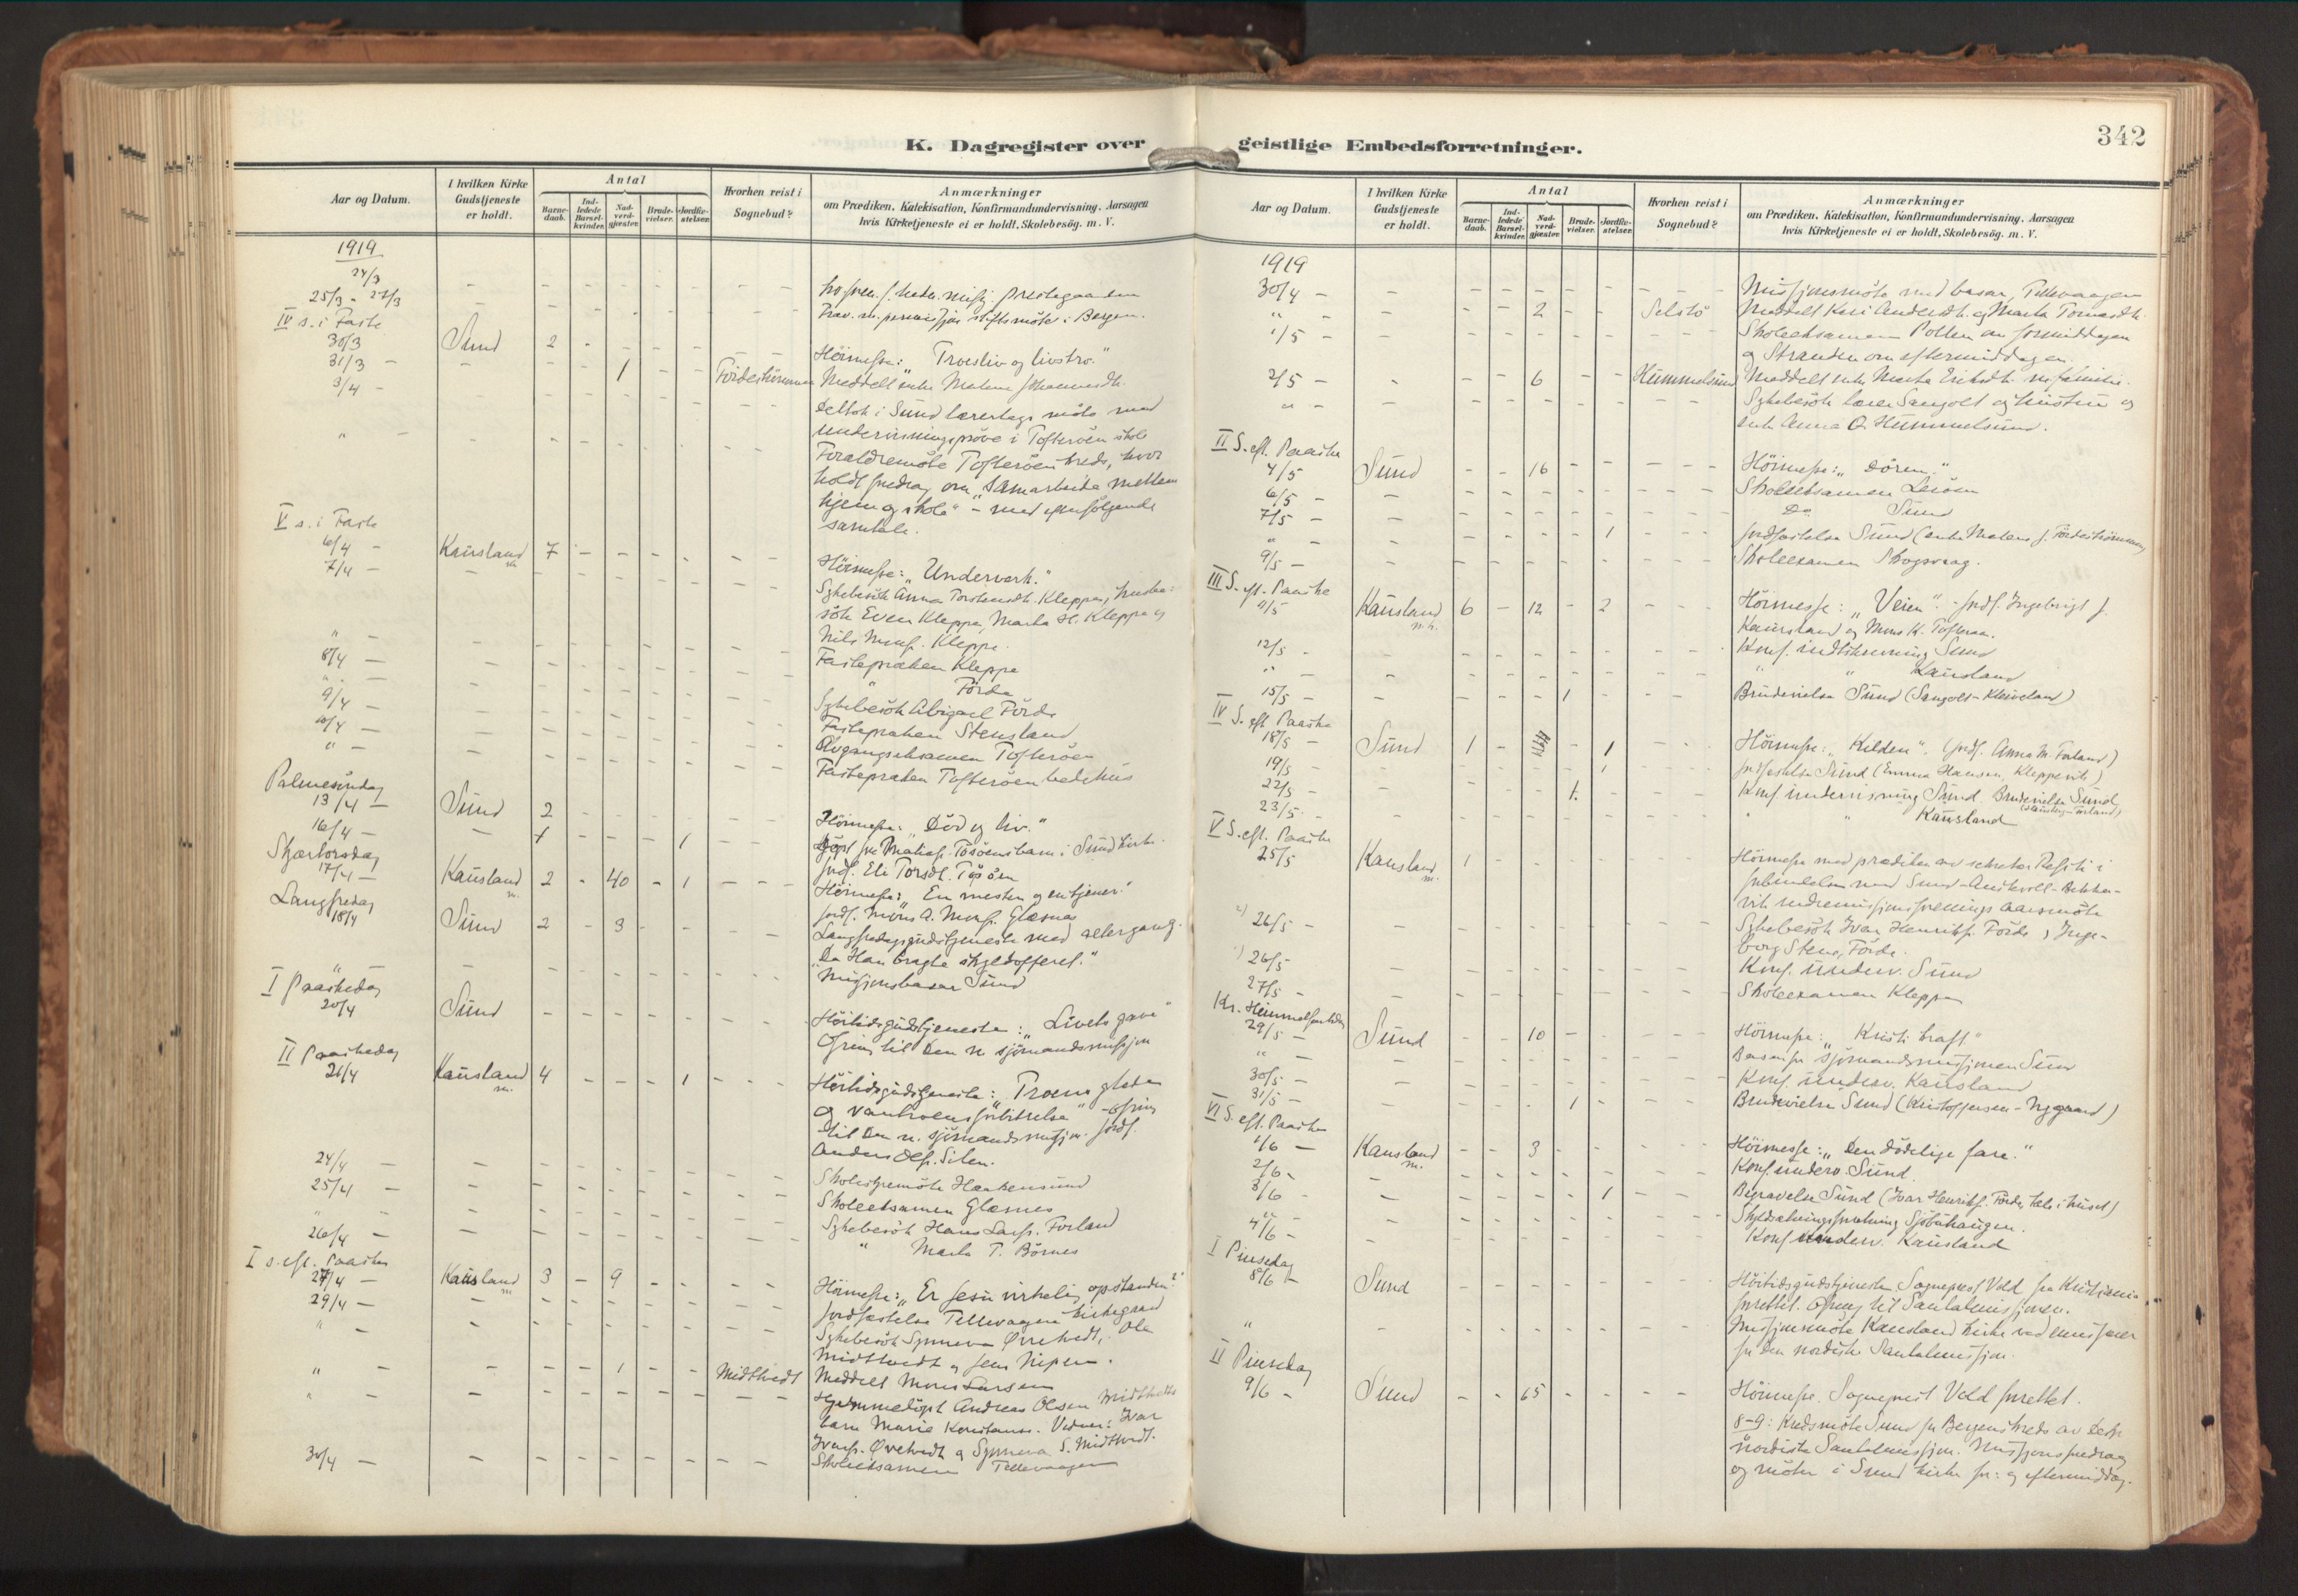 342
K. Dagregister over
Aar og Datum.
I hvilken Kirke Gudstjeneste er holdt.
Antal
Barnedaab.
Indledede Barselkvinder.
Nadverdgjester.
Brudevielser.
Jordfæstelser.
Hvorhen reist i Sognebud?
Anmærkninger
om Prædiken, Katekisation, Konfirmandundervisning, Aarsagen
hvis Kirketjeneste ei er holdt, Skolebesög. m. V.
1919
24/3
25/3 - 27/3
IV s. i Faste
30/3 Sund 2 Höimesse: "Troesliv og livstro."
31/3 1 Meddelt enke Malene
3/4 Deltok i Sund lærerlags möte med
undervisningspröve i Tofteröen skole
" Forældremöte Tofteröen kreds, hvor
holdt foredrag om "Samarbeide mellem
hjem og skole" - med efterfölgende
samtale.
V s. i Faste
6/4 Kausland 7 Höimesse: "Underverk."
7/4 Sykebesök Anna Torstensdt. Kleppe, husbe-
sök Even Kleppe, Marta H. Kleppe og
Nils Monss. Kleppe.
" Fastepræken Kleppe
8/4 " Förde
" Sykebesök Abigael Förde
9/4 Fastepræken Stensland
10/4 Avgangseksamen Tofteröen
" Fastepræken Tofteröen bedehus
Palmesöndag
13/4 Sund 2 Höimesse: "Död og liv."
16/4 1 1
jordf. Eli Torsdt. Tösöen
Skjærtorsdag
17/4 Kausland 2 40 1 Höimesse: "En mester og en tjener."
jordf. Mons A. Monss. Glæsnes
Langfredag
18/4 Sund 2 3 Langfredagsgudstjeneste med altergang.
"Da Han bragte skyldofferet."
" Misjonsbasar Sund
I Paaskedag
20/4 Sund Höitidsgudstjeneste: "Livets gave"
Ofring til Den n. sjömandsmissjon
II Paaskedag
21/4 Kausland 4 1 Höitidsgudstjeneste: "Troens glæde
og vantroens forbitrelse" - Ofring
til Den n. sjömandsmissjon. Jordf.
Anders Olss. Silen.
24/4 Skolestyremöte Hankensund
25/4 Skoleeksamen Glæsnes
" Sykebesök Hans Larss. Forland
26/4 " Marta T. Börnes
I s. eft. Paaske
27/4 Kausland 3 9 Höimesse: "Er Jesu virkelig opstanden?"
29/4 Jordfæstelse Tellevaagen kirkegaard
" Sykebesök Synneva Övretvedt, Ole
Midttvedt og Jens Nipen.
" 1 Midttvedt Meddelt Mons Larsen
" Hjemmedöpt Andreas Olsen Midttvedts
barn Marie Konstanse. Vidner: Ivar
Ivarss. Övretvedt og Synneva S. Midttvedt.
30/4 Skoleeksamen Tellevaagen
geistlige Embedsforretninger.
Aar og Datum.
I hvilken Kirke Gudstjeneste er holdt.
Antal
Barnedaab.
Indledede Barselkvinder.
Nadverdgjester.
Brudevielser.
Jordfæstelser.
Hvorhen reist i Sognebud?
Anmærkninger
om Prædiken, Katekisation, Konfirmandundervisning, Aarsagen
hvis Kirketjeneste ei er holdt, Skolebesög. m. V.
1919
30/4 Missjonsmöte med basar, Tellevaagen
" 2 Selstö Meddelt Kari Andersdt. og Marta Tomasdt.
1/5 Skoleeksamen Pollen om formiddagen
og Stranden om eftermiddagen.
2/5 6 Hummelsund Meddelt enke Marta Eriksdt. m. familie.
" Sykebesök lærer Sangolt og hustru og
enke Anna O. Hummelsund.
II S. eft. Paaske
4/5 Sund 16 Höimesse: "Dören."
6/5 Skoleeksamen Leröen
7/5 Do Sund
" 1 Jordfæstelse Sund
9/5 Skoleexamen Skogsvaag.
III S. eft. Paaske
11/5 Kausland 6 12 2 Höimesse: "Veien". Jordf. Ingebrigt J.
Kausland og Mons K. Tofteraa.
12/5 Konf. indskrivning Sund
" " Kausland
15/5 1 Brudevielse Sund (Sangolt-Kleiveland)
IV S. eft. Paaske
18/5 Sund 1 1 Höimesse: "Kilden". (jordf. Anna M. Forland)
19/5 1 Jordfæstelse Sund (Emma Hansen, Kleppevik)
22/5 1. Konf undervisning Sund Brudevielse Sund
23/5 " " Kausland
V S. eft. Paaske
25/5 Kausland 1 Höimesse med prædiken av sekretær
forbindelse med Sund-Austevoll-
vik indremissjonsforenings aarsmöte
26/5 Sykebesök Ivar Henrikss. Förde, Inge-
borg Stene, Förde.
26/5 Konf. underv. Sund
27/5 Skoleexamen Kleppe
Kr. Himmelfartsdag
29/5 Sund 10 Höimesse: "Kristi kraft"
" Basar for sjömandsmissjonen Sund
30/5 Konf. underv. Kausland
31/5 1 Brudevielse Sund (Kristoffersen-Nygaard)
VI S. eft. Paaske
1/6 Kausland 3 Höimesse: "Den dödelige fare."
2/6 Konf. underv. Sund.
3/6 1 Begravelse Sund (Ivar Henrikss. Förde, tale i huset)
" Skyldsætningsforretning Sjöbuhaugen.
4/6 Konf underv. Kausland
I Pinsedag
8/6 Sund Höitidsgudstjeneste Sogneprest Vold fra Kristiania
forrettet. Ofring til Santalmissjonen.
" Missjonsmöte Kausland kirke ved emissær
for den nordiske Santalmissjon.
II Pinsedag
9/6 Sund 65 Höimesse. Sogneprest Vold forrettet.
8-9: Kredsmöte Sund for Bergens kreds av Den
nordiske Santalmissjon. Missjonsforedrag
og möter i Sund kirke for- og eftermiddag.